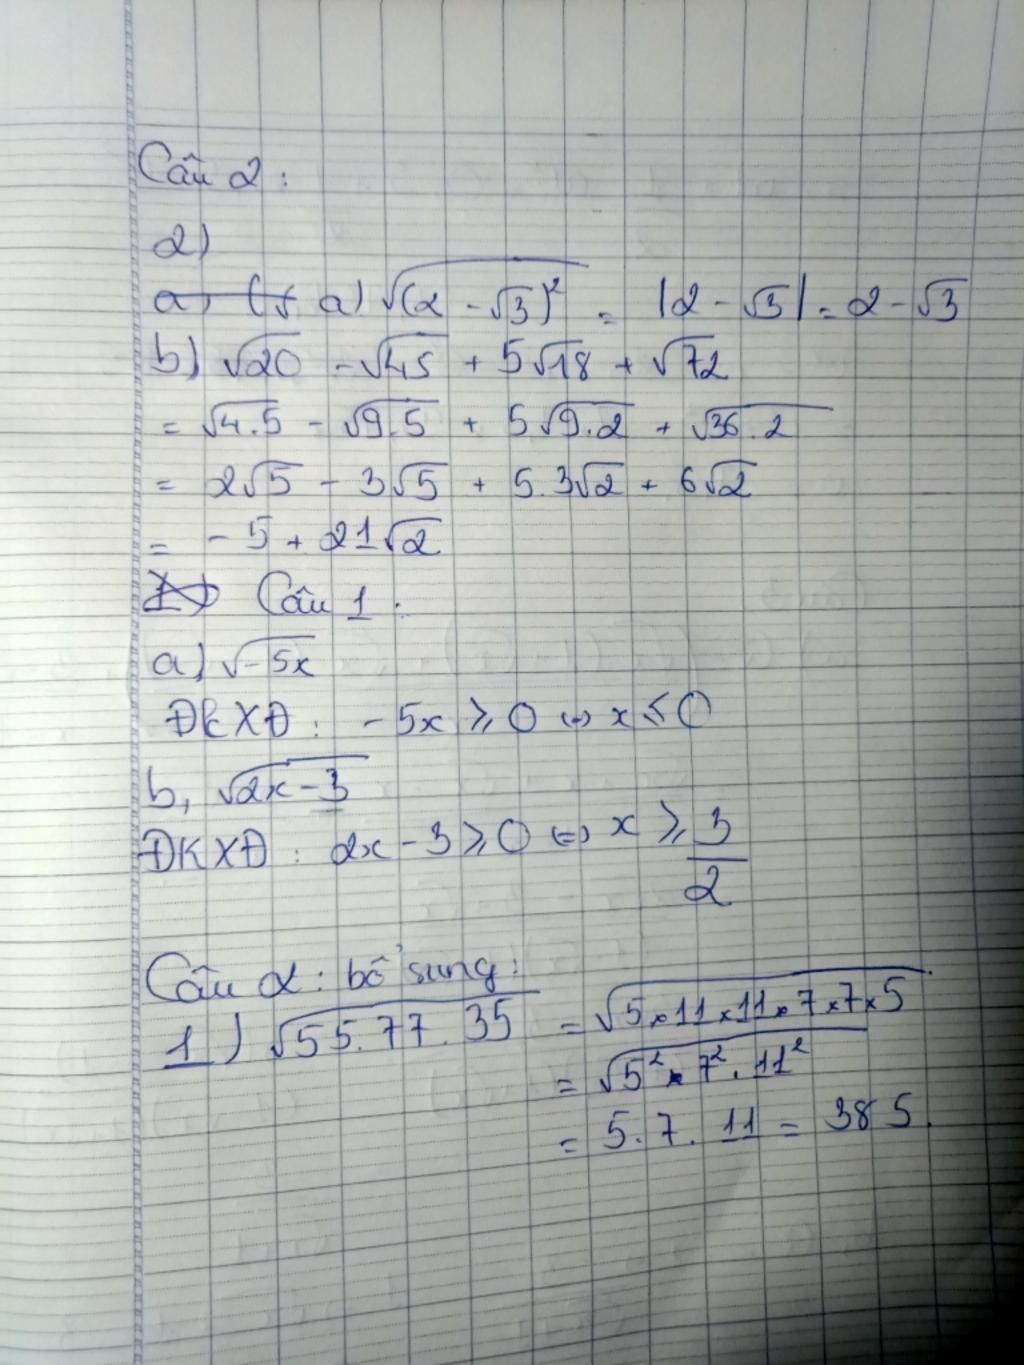 Câu 2:
2)
a, (√ a) √(2 - √3)² = |2 - √3| = 2 - √3
b) √20 - √45 + 5√18 + √72
= √4.5 - √9.5 + 5√9.2 + √36.2
= 2√5 - 3√5 + 5.3√2 + 6√2
= - 5 + 21√2
1) Câu 1.
a) √-5x
ĐKXĐ: -5x ⩾ 0 ⇔ x ≤ 0
b, √2x-3
ĐKXĐ: 2x - 3 ⩾ 0 ⇔ x ⩾ 3/2
Câu 2: bổ sung:
1) √55.77.35 = √5×11×11×7×7×5
= √5² × 7² . 11²
= 5.7.11 = 385.